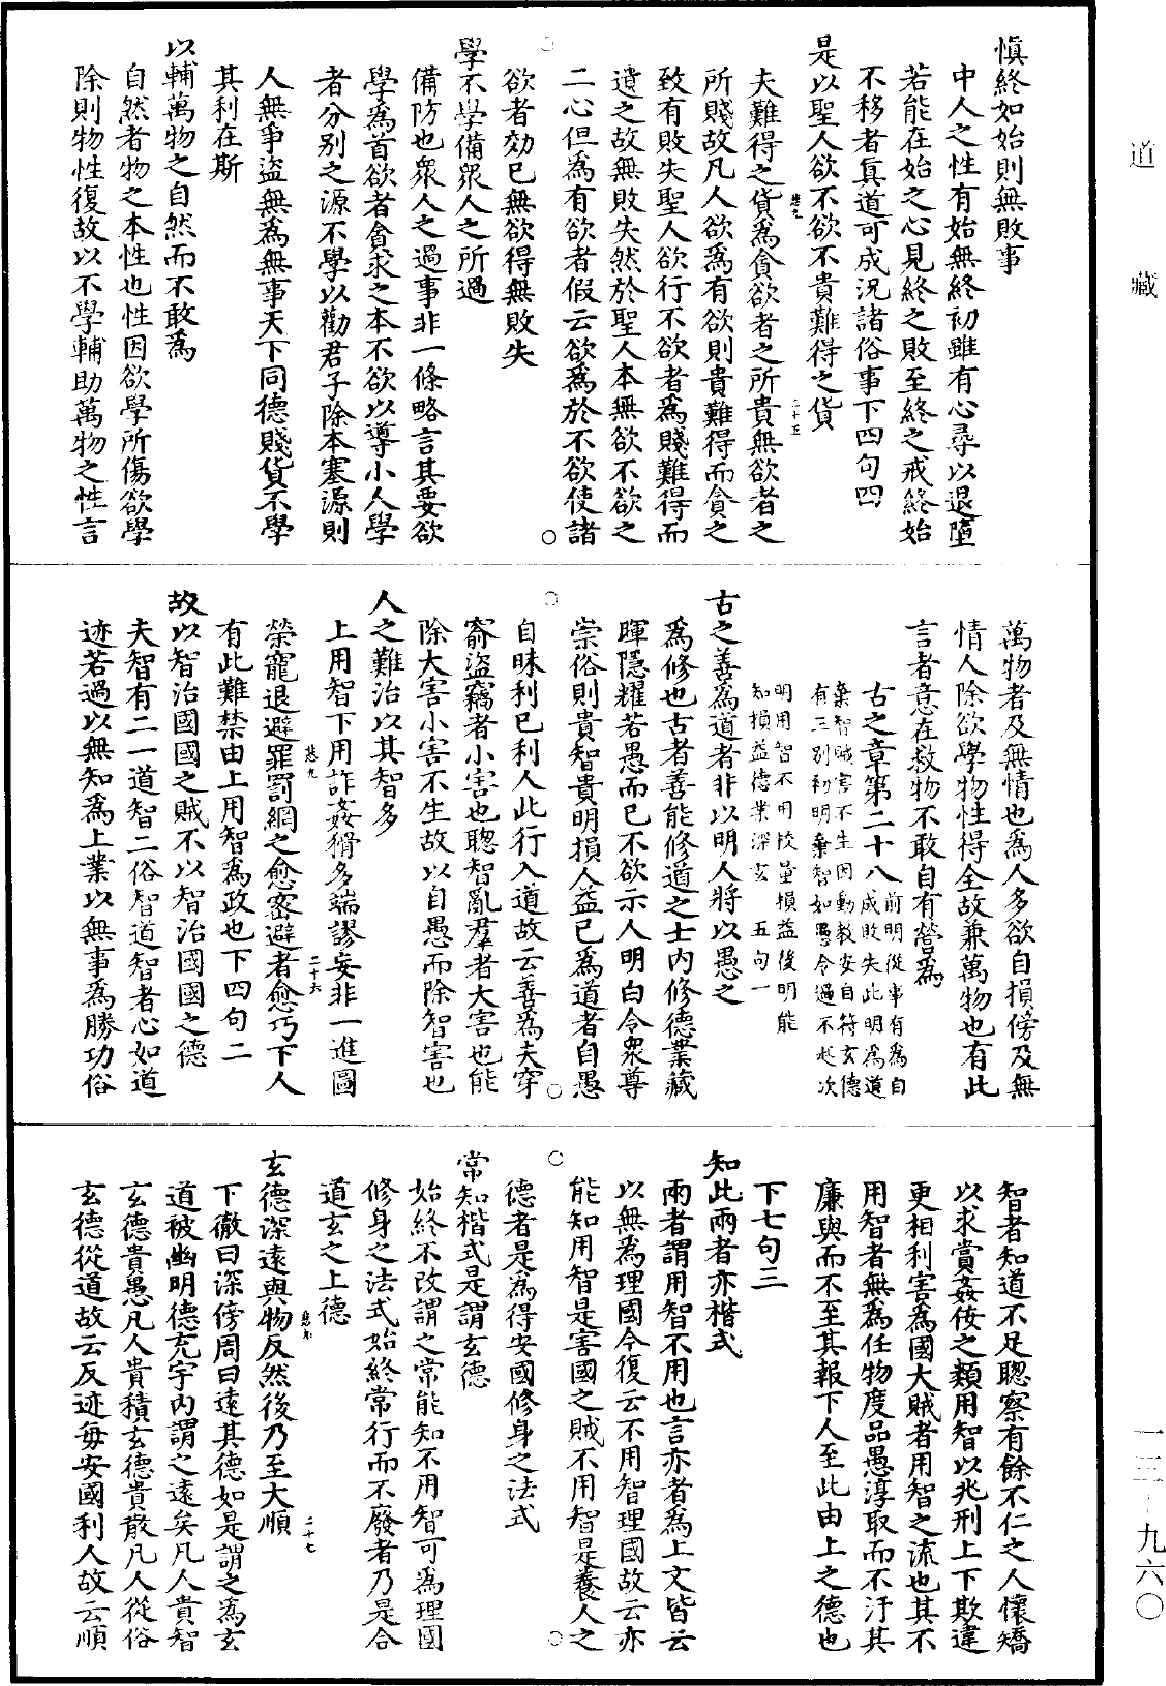 道藏
慎終如始則無敗事
中人之性有始無終初雖有心尋以退墮
若能在始之心見終之敗至終之戒終始
不移者真道可成況諸俗事下四句四
是以聖人欲不欲不貴難得之貨
夫難得之貨為貪欲者之所貴無欲者之
所賤故凡人欲為有欲則貴難得而貪之
致有敗失聖人欲行不欲者為賤難得而
遺之故無敗失然於聖人本無欲不欲之
二心但為有欲者假云欲為於不欲使諸
欲者効已無欲得無敗失
學不學備眾人之所過
備防也眾人之過事非一條略言其要欲
學為首欲者貪求之本不欲以導小人學
者分別之源不學以勸君子除本塞源則
人無爭盜無為無事天下同德賤貨不學
其利在斯
以輔萬物之自然而不敢為
自然者物之本性也性因欲學所傷欲學
除則物性復故以不學輔助萬物之性言
萬物者及無情也為人多欲自損傍及無
情人除欲學物性得全故兼萬物也有此
言者意在救物不敢自有營為
古之章第二十八
前明從事有為自
成敗失此明為道
棄智賊害不生因動教安自符玄德
有三別初明棄智如愚令過不越次
明用智不用校量損益後明能
知損益德業深玄 五句一
古之善為道者非以明人將以愚之
為修也古者善能修道之士內修德業藏
暉隱耀若愚而已不欲示人明白令眾尊
崇俗則貴智貴明損人益已為道者自愚
自昧利已利人此行入道故云善為夫穿
窬盜竊者小害也聰智亂羣者大害也能
除大害小害不生故以自愚而除智害也
人之難治以其智多
上用智下用詐姦猾多端謬妄非一進圖
榮寵退避罪罰網之愈密避者愈巧下人
有此難禁由上用智為政也下四句二
故以智治國國之賊不以智治國國之德
夫智有二一道智二俗智道智者心如道
迹若過以無知為上業以無事為勝功俗
智者知道不足聰察有餘不仁之人懷矯
以求賞姦佞之類用智以兆刑上下欺違
更相利害為國大賊者用智之流也其不
用智者無為任物度品愚淳取而不汙其
廉與而不至其報下人至此由上之德也
下七句三
知此兩者亦楷式
兩者謂用智不用也言亦者為上文皆云
以無為理國今復云不用智理國故云亦
能知用智是害國之賊不用智是養人之
德者是為得安國修身之法式
常知楷式是謂玄德
始終不改謂之常能知不用智可為理國
修身之法式始終常行而不廢者乃是合
道玄之上德
玄德深遠與物反然後乃至大順
下徹曰深傍周曰遠其德如是謂之為玄
道被幽明德充宇內謂之遠矣凡人貴智
玄德貴愚凡人貴積玄德貴散凡人從俗
玄德從道故云反迹每安國利人故云順
卷九
二十五
卷九
二十六
卷九
二十七
一三–九六〇